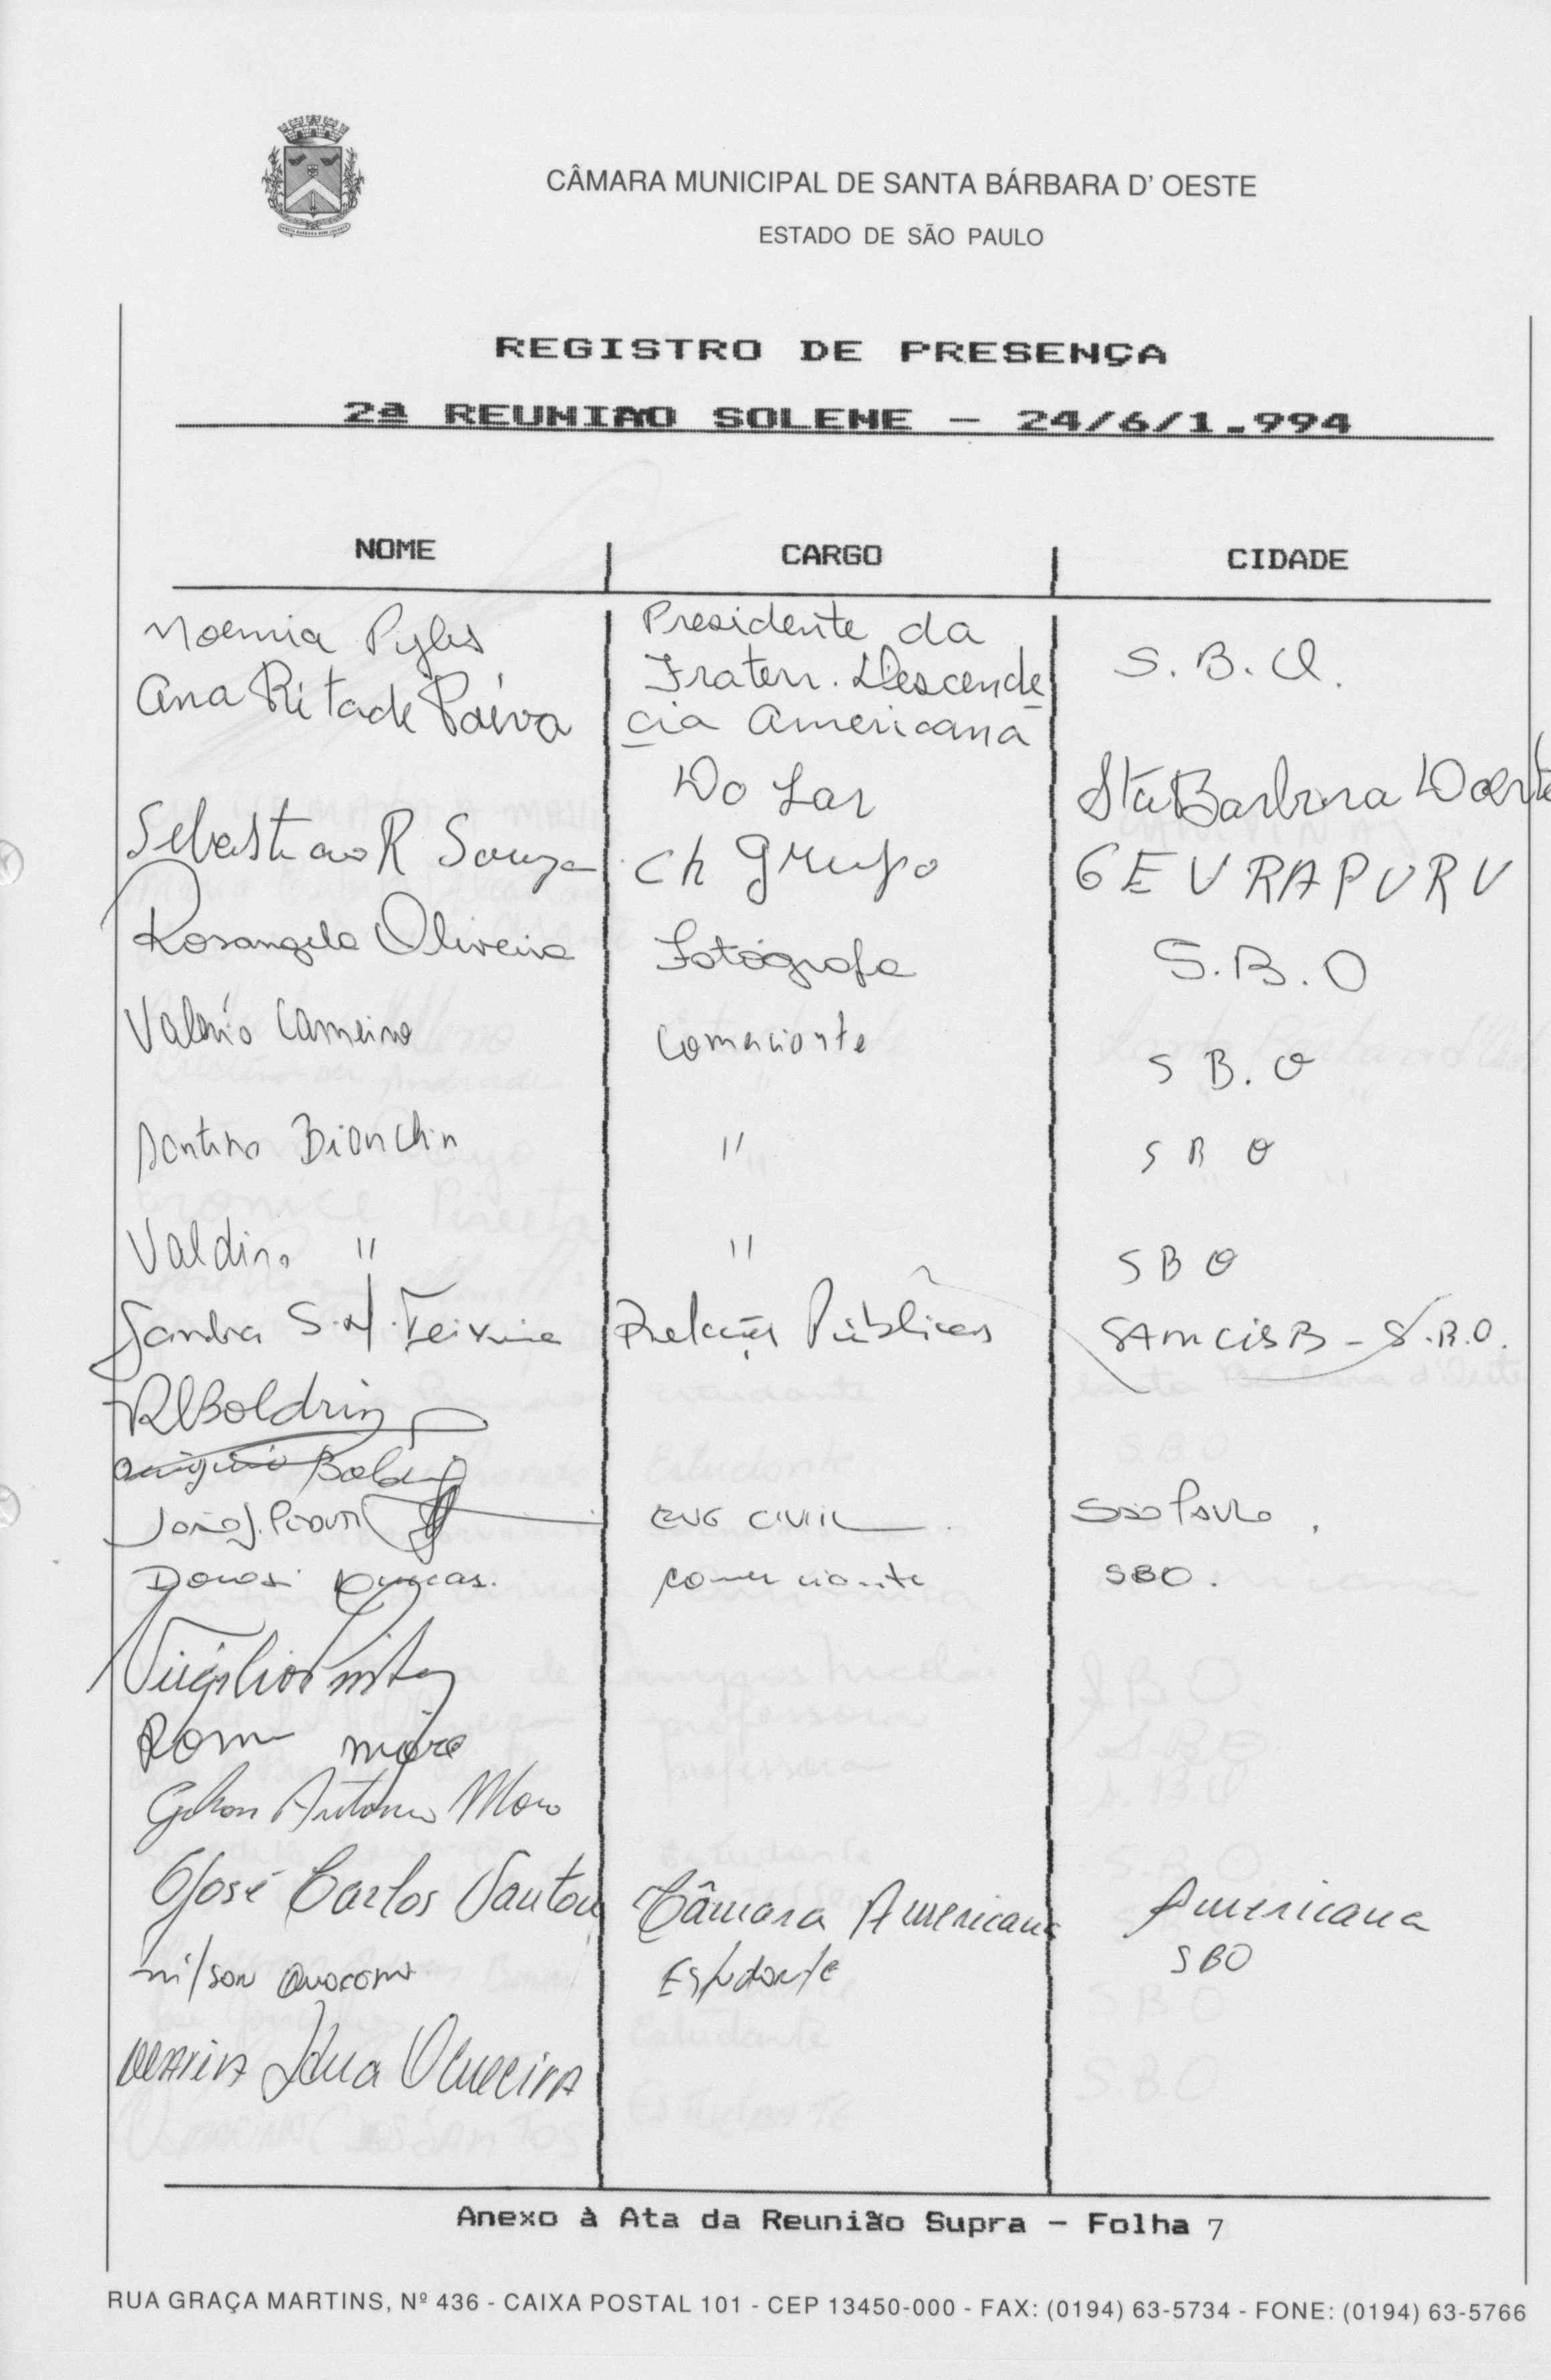 CÂMARA MUNICIPAL DE SANTA BÁRBARA D' OESTE
ESTADO DE SÃO PAULO
REGISTRO DE PRESENÇA
2ª REUNIAO SOLENE - 24/6/1.994
NOME CARGO CIDADE
Noemia Pyles Presidente da
Fratern. Descende S.B.O.
Ana Rita de Paiva cia Americana
Do Lar Sta Barbara
Sebastiao R Souza Ch grupo GEURAPURU
Rosangela Oliveira Fotógrafa S.B.O
Valério Carneiro Comerciante S B.O
Santino Bionchin " S B O
Valdir " " S B O
Sandra S. Teixeira Relações Públicas S.B.O.
Boldrin
João J. ENG CIVIL São Paulo.
comerciante SBO.
Virgilio
Gilson Antonio Moro
José Carlos Santos Câmara Americana Americana
nilson Estudante SBO
Oliveira
Anexo à Ata da Reunião Supra - Folha 7
RUA GRAÇA MARTINS, Nº 436 - CAIXA POSTAL 101 - CEP 13450-000 - FAX: (0194) 63-5734 - FONE: (0194) 63-5766